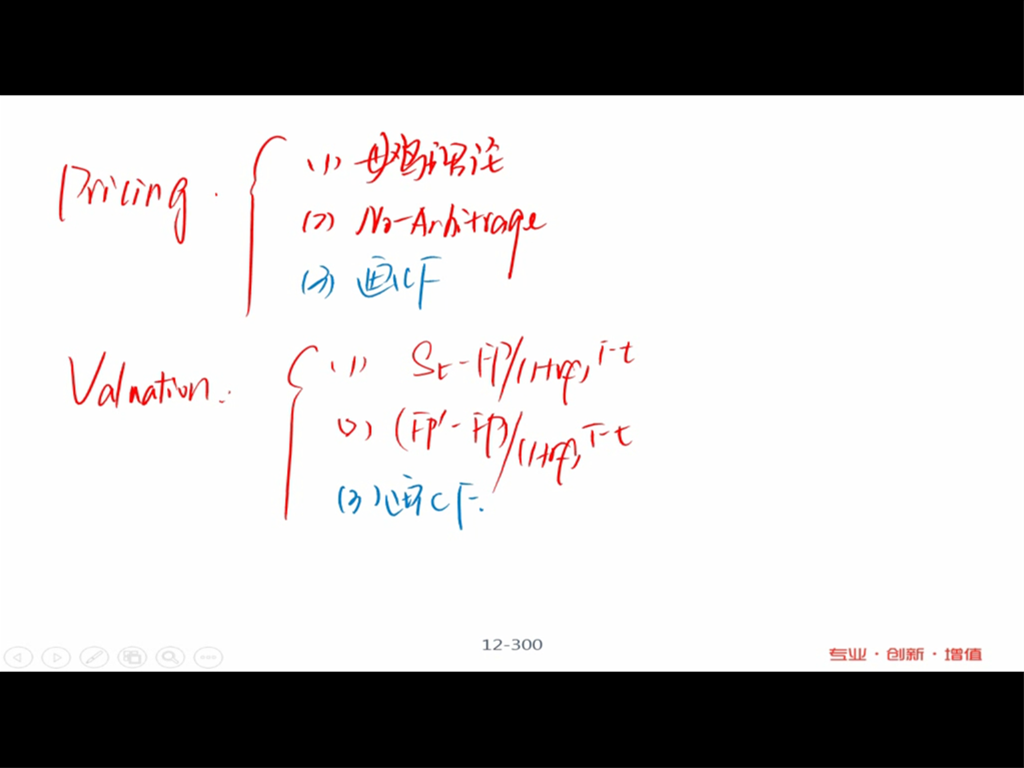 Pricing.
(1) 母鸡理论
(2) No-Arbitrage
(3) 画CF
Valuation:
(1) St-FP/(1+rf)^T-t
(2) (FP'-FP)/(1+rf)^T-t
(3) 画CF.
12-300
专业·创新·增值